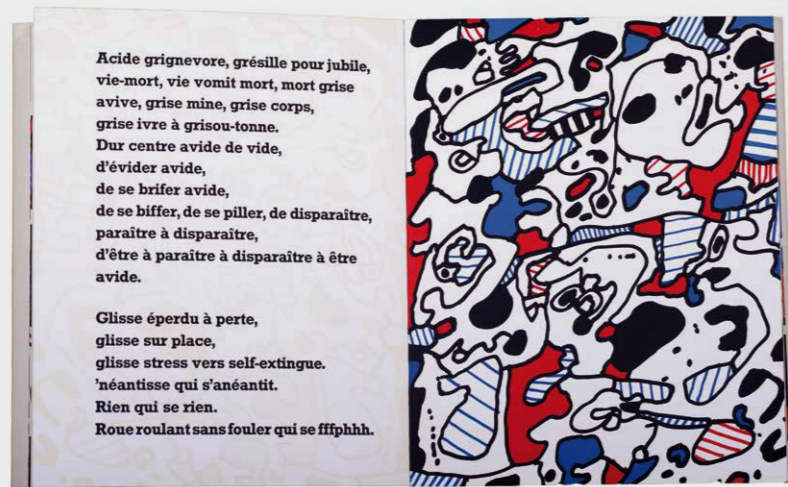 Acide grignevore, grésille pour jubile,
vie-mort, vie vomit mort, mort grise
avive, grise mine, grise corps,
grise ivre à grisou-tonne.
Dur centre avide de vide,
d'évider avide,
de se brifer avide,
de se biffer, de se piller, de disparaître,
paraître à disparaître,
d'être à paraître à disparaître à être
avide.
Glisse éperdu à perte,
glisse sur place,
glisse stress vers self-extingue.
'néantisse qui s'anéantit.
Rien qui se rien.
Roue roulant sans fouler qui se fffphhh.